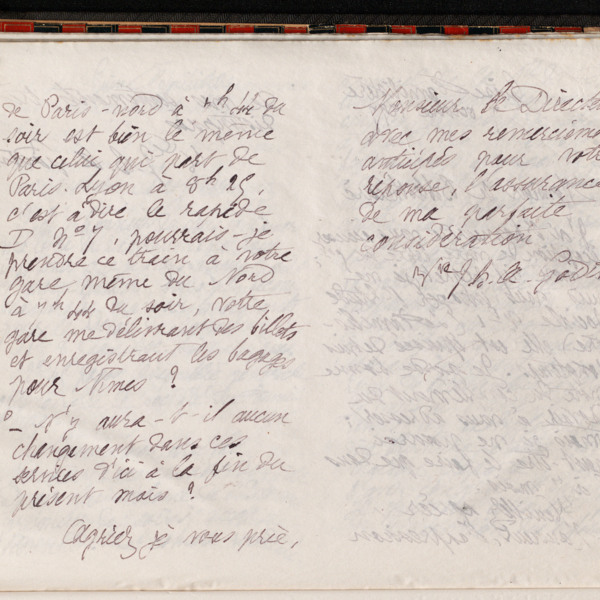 de Paris-nord à 7h 44 du
soir est bien le même
que celui qui part de
Paris-Lyon à 8h 25,
c'est à dire le rapide
D nº 7, pourrais-je
prendre ce train à votre
gare même du Nord
à 7h 44 du soir, votre
gare me délivrant des billets
et enregistrant les bagages
pour Nîmes ?
º - N'y aura-t-il aucun
changement dans ces
services d'ici à la fin du
présent mois ?
Agréez je vous prie,
Monsieur le Directeu
avec mes remerciem
anticipés pour votr
réponse, l'assurance
de ma parfaite
considération
Vve J. B. A. Godin